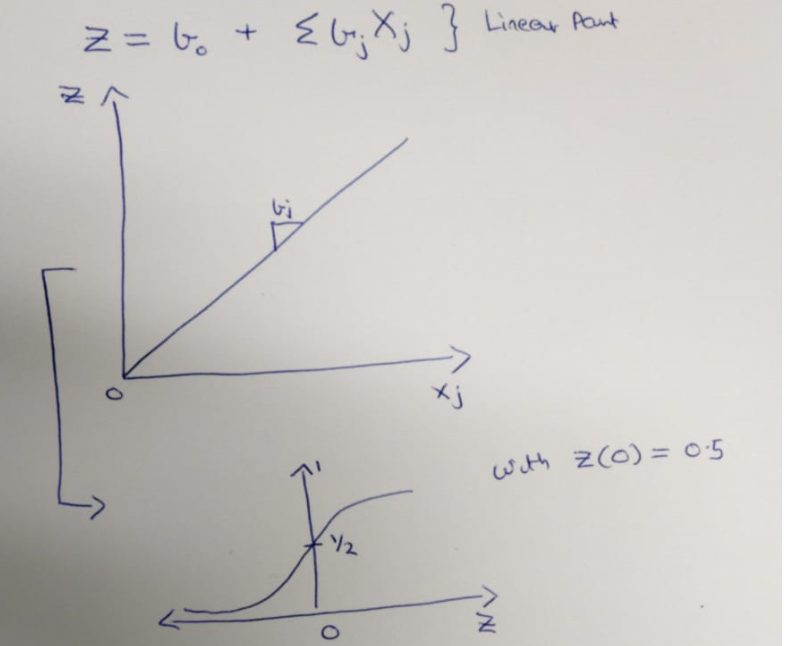 z = b₀ + Σ bⱼ Xⱼ } Linear Part
z
bj
0
xj
with z(0) = 0.5
1
1/2
0
z